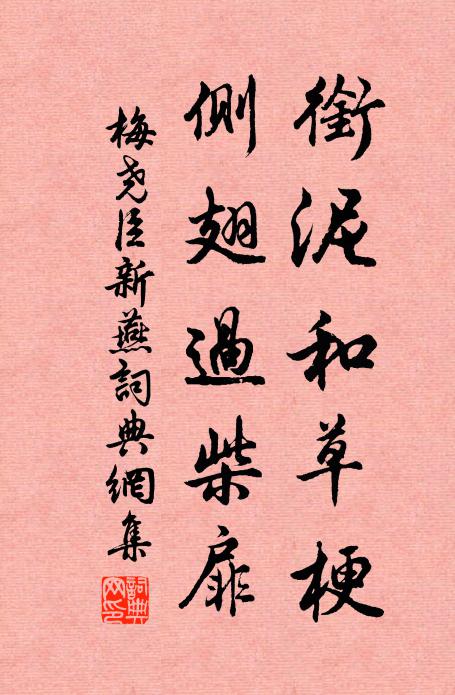 銜泥和草梗
側翅過柴扉
梅堯臣新燕詞典網集
詞典网印